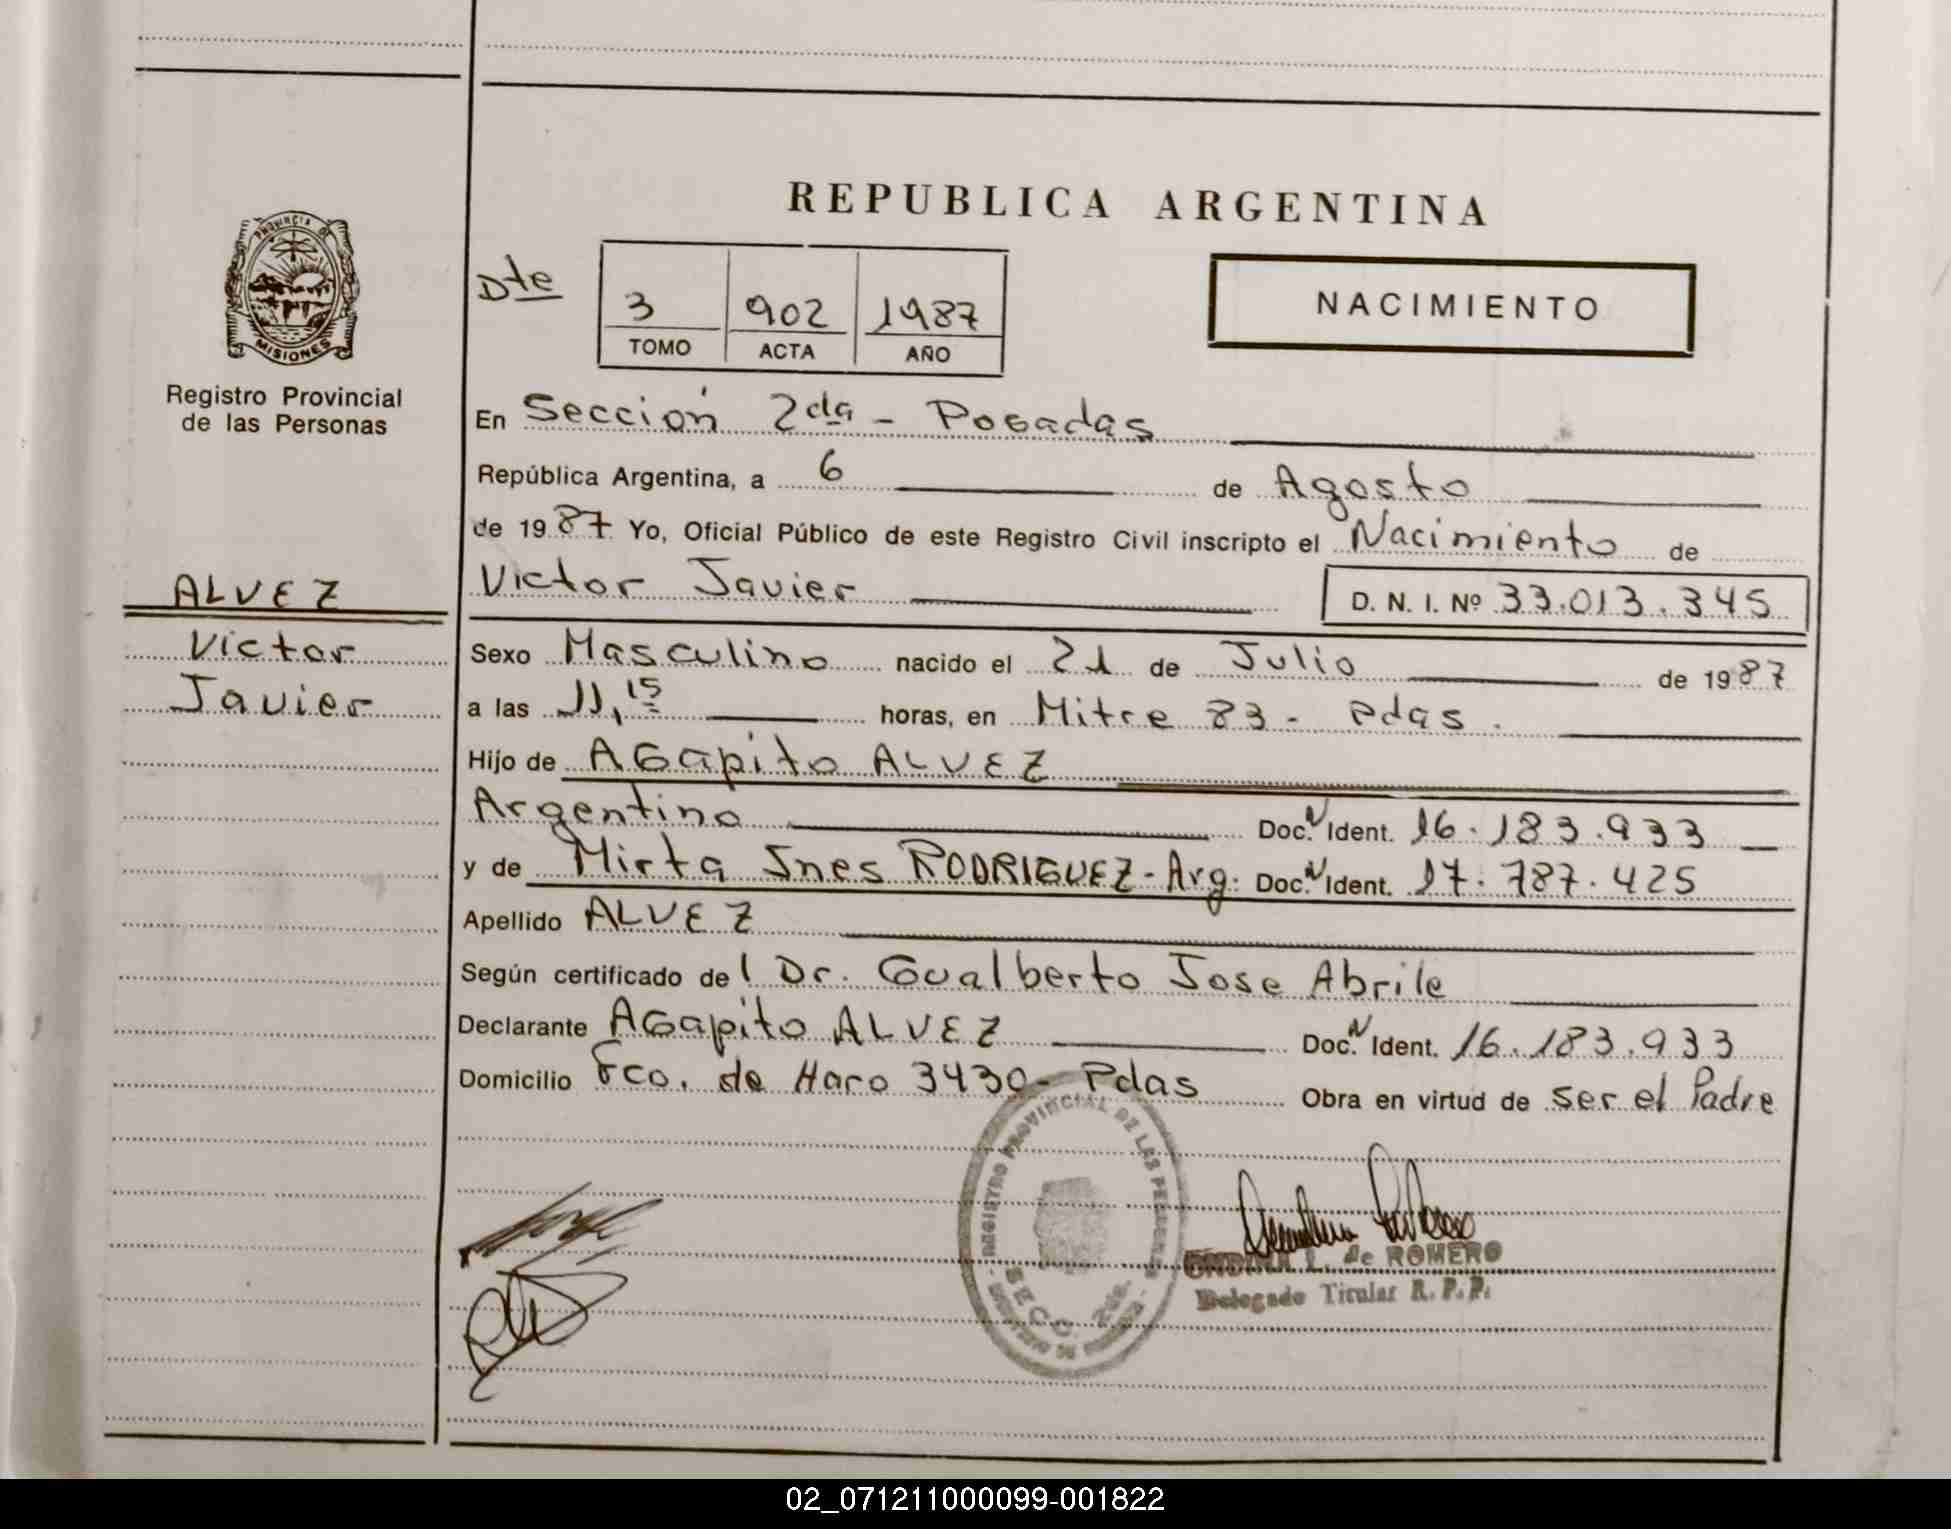 REPUBLICA ARGENTINA
PROVINCIA DE
MISIONES
Registro Provincial
de las Personas
Dte
3 902 1987
TOMO ACTA AÑO
NACIMIENTO
En Sección 2da - Posadas
República Argentina, a 6 de Agosto
de 1987 Yo, Oficial Público de este Registro Civil inscripto el Nacimiento de
Victor Javier D. N. I. Nº 33.013.345
ALVEZ
Victor
Javier
Sexo Masculino nacido el 21 de Julio de 1987
a las 11,15 horas, en Mitre 83 - Pdas.
Hijo de AGapito ALVEZ
Argentino Doc. N Ident. 16.183.933
y de Mirta Ines RODRIGUEZ - Arg. Doc. N Ident. 17.787.425
Apellido ALVEZ
Según certificado del Dr. Gualberto Jose Abrile
Declarante AGapito ALVEZ Doc. N Ident. 16.183.933
Domicilio Fco. de Haro 3430 - Pdas Obra en virtud de ser el Padre
REGISTRO PROVINCIAL DE LAS PERSONAS
SECC. 2da.
L. de ROMERO
Delegado Titular R. P. P.
02_071211000099-001822